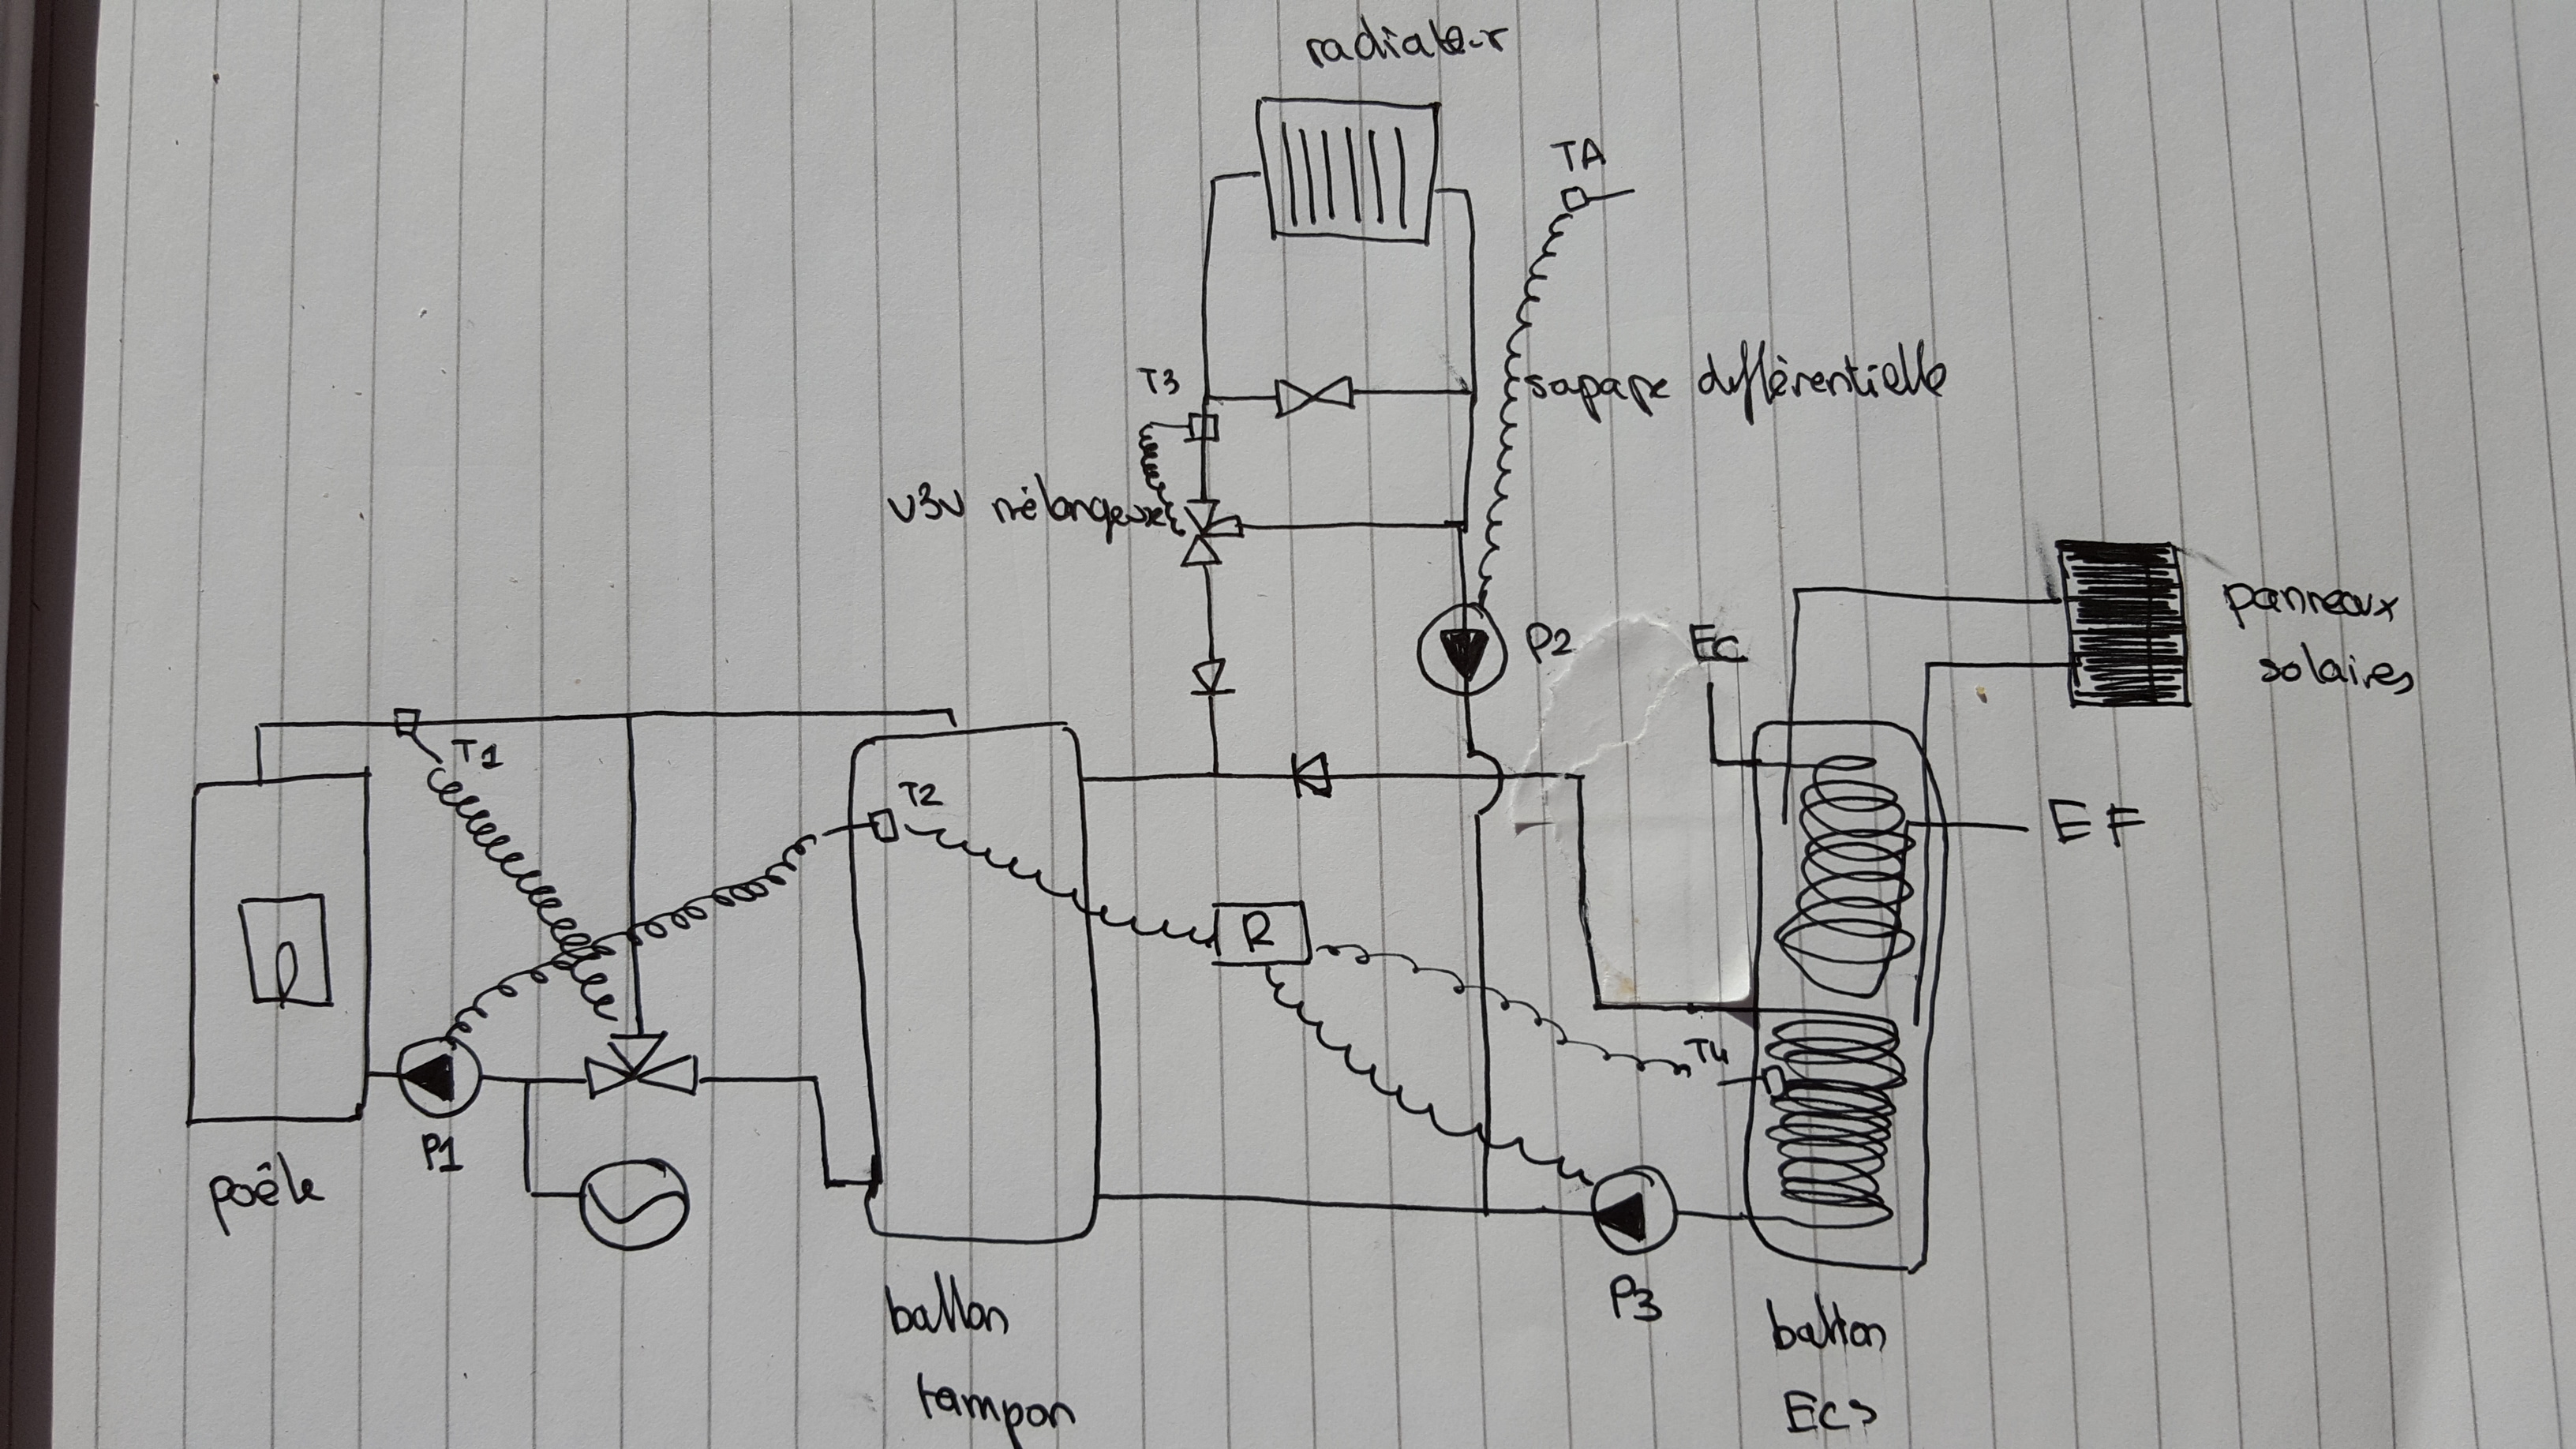 radiateur
TA
T3
sapape différentielle
v3v mélangeuse
P2
Ec
panneaux
solaires
T1
T2
EF
R
T4
P1
poêle
P3
ballon
tampon
ballon
Ecs